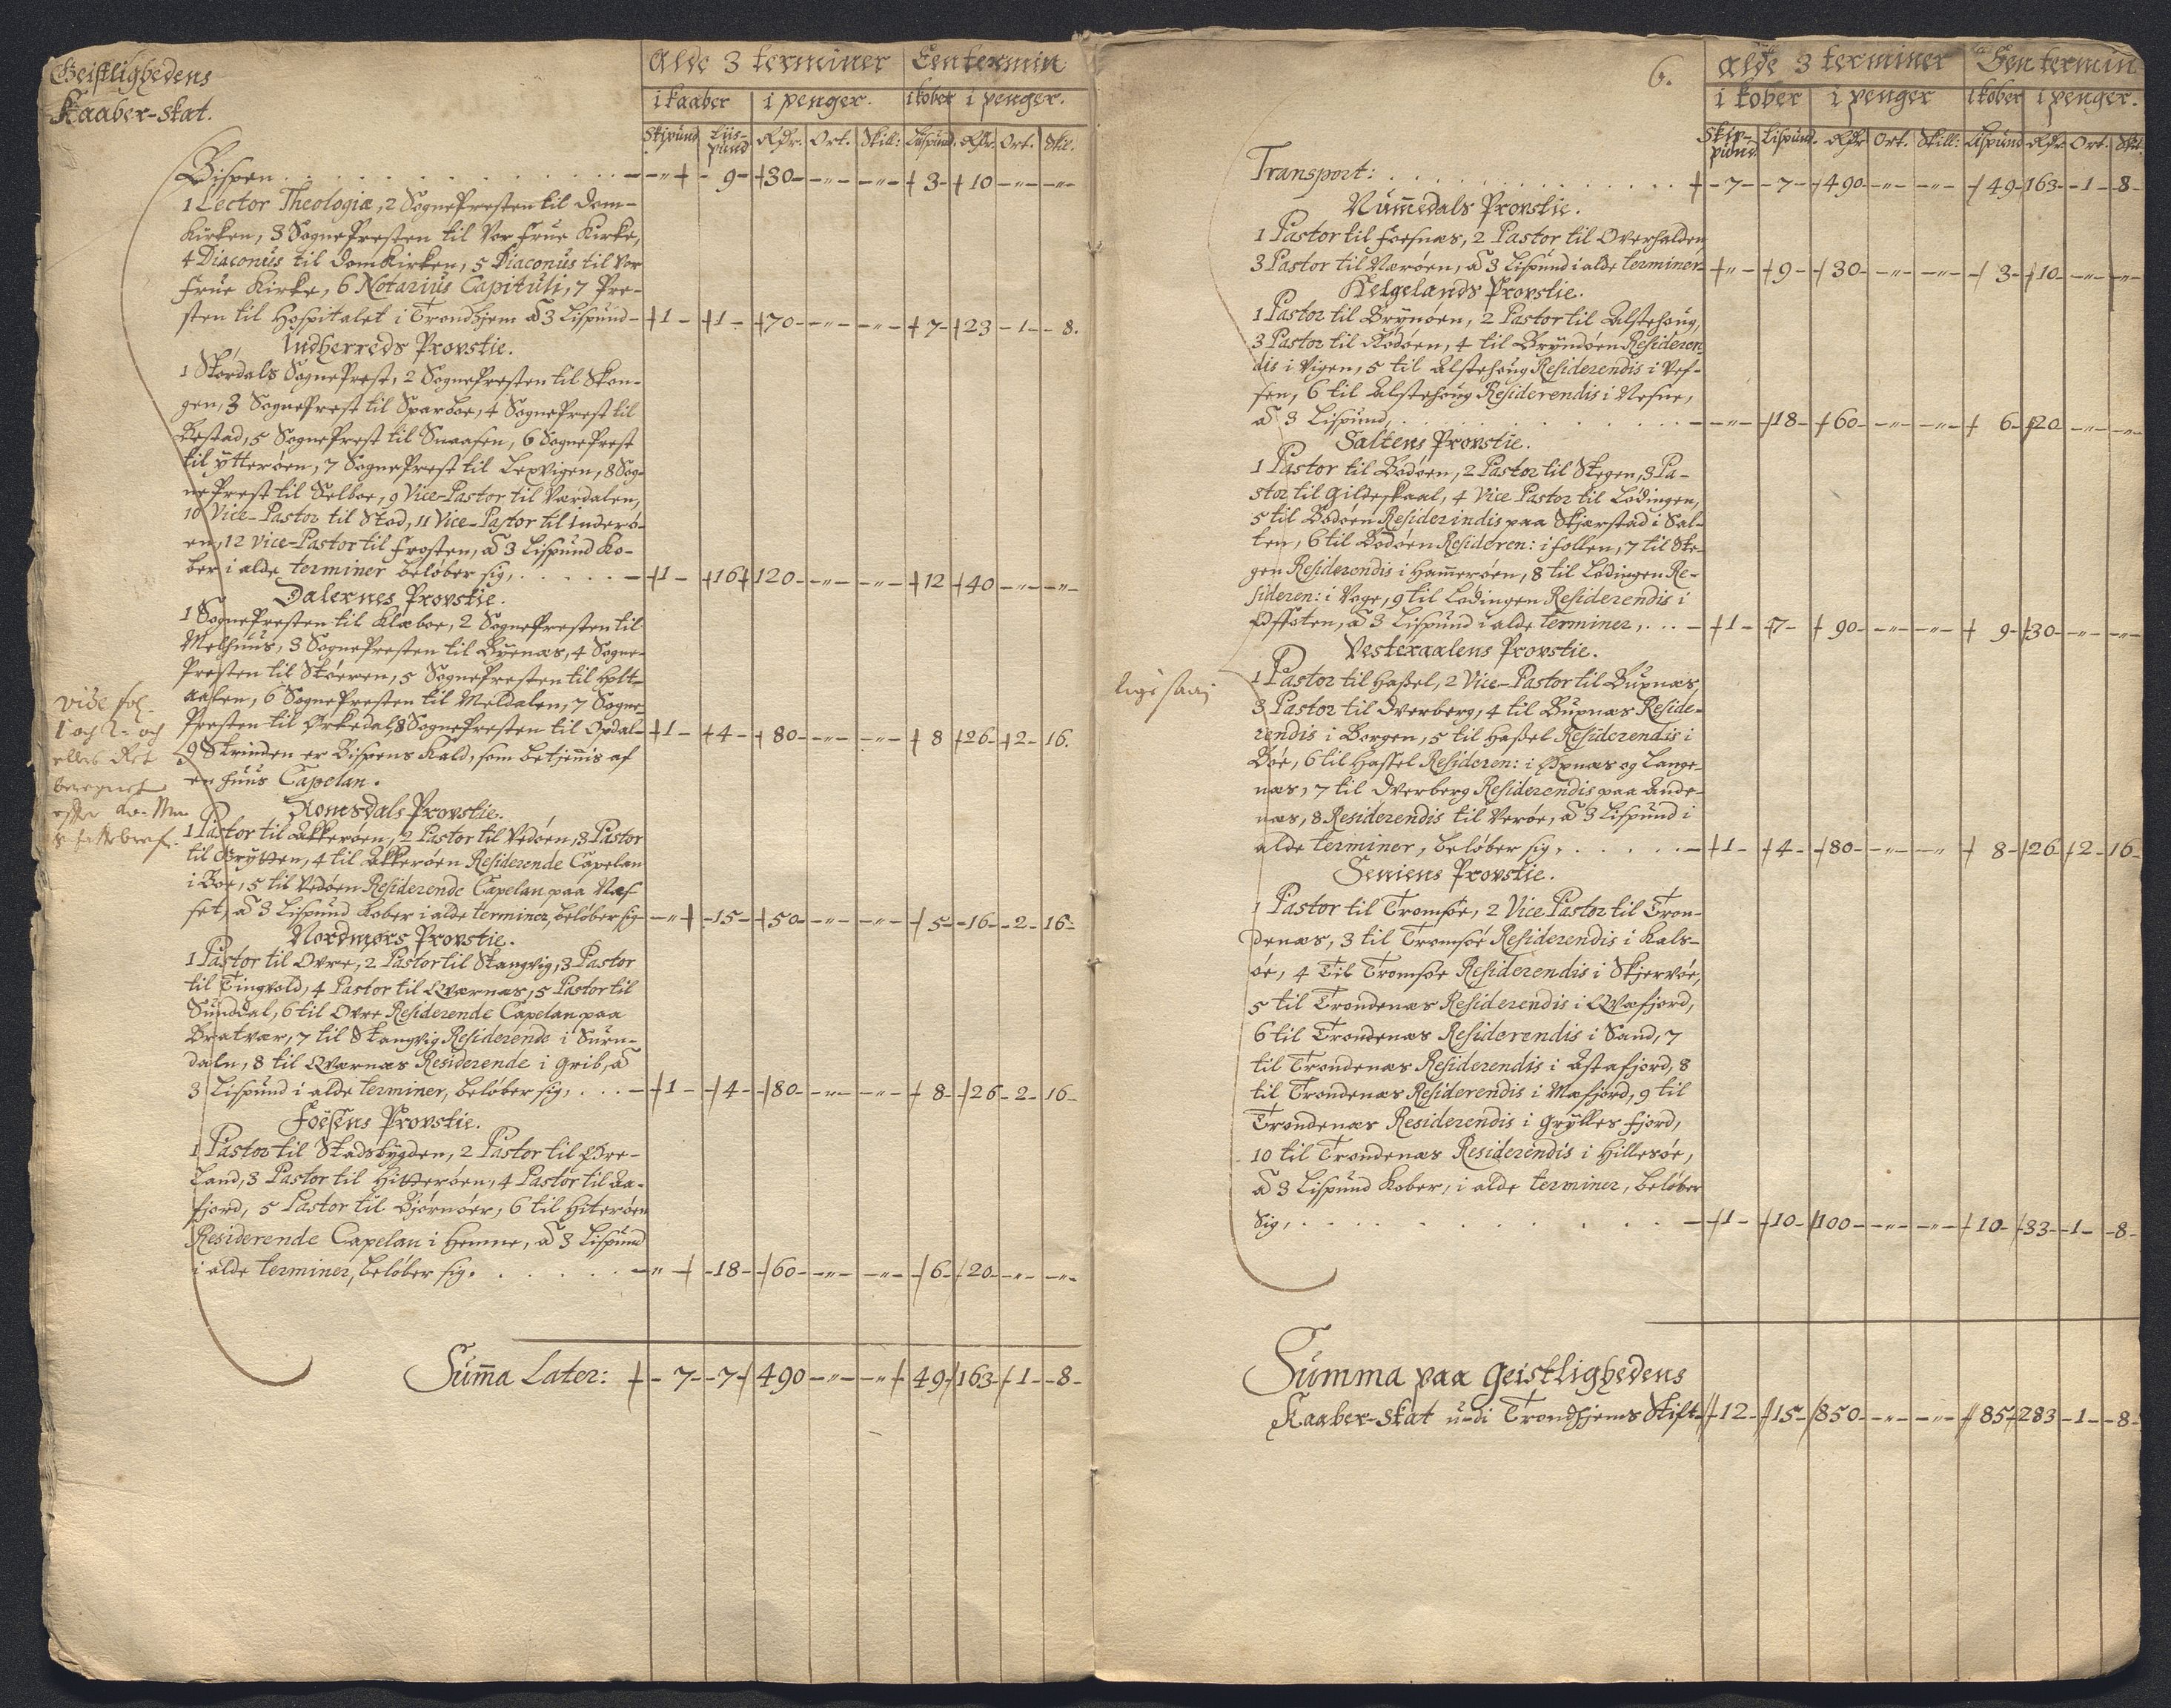 Geistlighedens
Kaaber-skat.
Alde 3 terminer Een termin
i kaaber i penger. i kober i penger.
Skipund Liis-pund Rdr. Ort. Skill: Lispund. Rdr. Ort. Skil.
Bispen . . . . . . - " - 9 - 30 - " - " - 3 - 10 - " - " -
1 Lector Theologiæ, 2 SognePresten til Dom-
Kirken, 3 SognePresten til Vor Frue Kirke,
4 Diaconus til DomKirken, 5 Diaconus til Vor
Frue Kirke, 6 Notarius Capituli, 7 Pre-
sten til Hospitalet i Trondhjem á 3 Lispund - 1 - 1 - 70 - " - " - 7 - 23 - 1 - 8.
Indherreds Provstie.
1 Størdals SognePrest, 2 SognePresten til Skon-
gen, 3 SognePrest til Sparboe, 4 SognePrest til
Bestad, 5 SognePrest til Snaasen, 6 SognePrest
til ytterøen, 7 SognePrest til Lexvigen, 8 Sog-
nePrest til Selboe, 9 Vice-Pastor til Værdalen,
10 Vice-Pastor til Stod, 11 Vice-Pastor til Inderø-
en, 12 Vice-Pastor til Frosten, á 3 Lispund Ko-
ber i alde terminer beløber sig, . . . . - 1 - 16 - 120 - " - " - 12 - 40 - " - " -
Dalernes Provstie.
1 SognePresten til Klæboe, 2 SognePresten til
Melhuus, 3 SognePresten til Byenæs, 4 Sogne-
Presten til Støeren, 5 SognePresten til Holt-
aalen, 6 SognePresten til Meldalen, 7 Sogne-
Presten til Ørkedal, 8 SognePresten til Opdal - 1 - 4 - 80 - " - " - 8 - 26 - 2 - 16.
9 Strinden er Bispens Kald, som betjenis af
en huus Capelan.
vide fol.
1 och 2 - och
ellers Ret
beregnet
Romsdals Provstie.
1 Pastor til Akkerøen, 2 Pastor til Vedøen, 3 Pastor
til Grytten, 4 til Akkerøen Residerende Capelan
i Boe, 5 til Vedøen Residerende Capelan paa Næs-
set, á 3 Lispund Kober i alde terminer, beløber sig - " - 15 - 50 - " - " - 5 - 16 - 2 - 16 -
Nordmørs Provstie.
1 Pastor til Ovre, 2 Pastor til Stangvig, 3 Pastor
til Tingvold, 4 Pastor til Qværnæs, 5 Pastor til
Sunddal, 6 til Ovre Residerende Capelan paa
Bratvær, 7 til Stangvig Residerende i Surn-
daln, 8 til Qværnæs Residerende i Grib, á
3 Lispund i alde terminer, beløber sig, . . . - 1 - 4 - 80 - " - " - 8 - 26 - 2 - 16 -
Foesens Provstie.
1 Pastor til Stadsbygden, 2 Pastor til Øre-
land, 3 Pastor til Hitterøen, 4 Pastor til Aa-
fjord, 5 Pastor til Bjørnøer, 6 til Hiterøen
Residerende Capelan i Hemne, á 3 Lispund
i alde terminer, beløber sig. . . . . . - " - 18 - 60 - " - " - 6 - 20 - " - " -
Summa Later: - 7 - 7 - 490 - " - " - 49 - 163 - 1 - 8 -
6.
Alde 3 terminer Een termin
i kober i penger i kober i penger.
Skip-pund. Lispund. Rdr Ort. Skill: Lispund Rdr. Ort. Skil.
Transport: . . . . . . - 7 - 7 - 490 - " - " - 49 - 163 - 1 - 8 -
Nummedals Provstie.
1 Pastor til Foesnæs, 2 Pastor til Overhalden
3 Pastor til Nærøen, á 3 Lispund i alde terminer - " - 9 - 30 - " - " - 3 - 10 - " - " -
Helgelands Provstie.
1 Pastor til Brynøen, 2 Pastor til Alstehoug,
3 Pastor til Rødøen, 4 til Bryndøen Resideren-
dis i Vigen, 5 til Alstehoug Residerendis i Vef-
sen, 6 til Alstehoug Residerendis i Nesne,
á 3 Lispund . . . . . . - " - 18 - 60 - " - " - 6 - 20 - " - " -
Saltens Provstie.
1 Pastor til Bodøen, 2 Pastor til Stegen, 3 Pa-
stor til Gildeskaal, 4 Vice Pastor til Lødingen,
5 til Bodøen Residerindis paa Skjærstad i Sal-
ten, 6 til Bodøen Resideren: i Follen, 7 til Ste-
gen Residerendis i Hamerøen, 8 til Lødingen Re-
sideren: i Vage, 9 til Lødingen Residerendis i
Offoten, á 3 Lispund i alde terminer, . . - 1 - 7 - 90 - " - " - 9 - 30 - " - " -
Vesteraalens Provstie.
1 Pastor til Hassel, 2 Vice-Pastor til Buxnæs,
3 Pastor til Overberg, 4 til Buxnæs Reside-
rendis i Borgen, 5 til Hassel Residerendis i
Bøe, 6 til Hassel Resideren: i Øxnæs og Lange-
næs, 7 til Overberg Residerendis paa Ande-
næs, 8 Residerendis til Verøe, á 3 Lispund i
alde terminer, beløber sig, . . . . . - 1 - 4 - 80 - " - " - 8 - 26 - 2 - 16 -
Seniens Provstie.
1 Pastor til Tromsøe, 2 Vice Pastor til Tron-
denæs, 3 til Tromsøe Residerendis i Kals-
øe, 4 Til Tromsøe Residerendis i Skjervøe,
5 til Trondenæs Residerendis i Qvæfjord,
6 til Trondenæs Residerendis i Sand, 7
til Trondenæs Residerendis i Astafjord, 8
til Trondenæs Residerendis i Mæfjord, 9 til
Trondenæs Residerendis i Grylles fjord,
10 til Trondenæs Residerendis i Hillesøe,
á 3 Lispund Kober, i alde terminer, beløber
Sig, . . . . . . - 1 - 10 - 100 - " - " - 10 - 33 - 1 - 8 -
Summa paa Geistlighedens
Kaaber-Skat udi Trondhjems Stift - 12 - 15 - 850 - " - " - 85 - 283 - 1 - 8 -